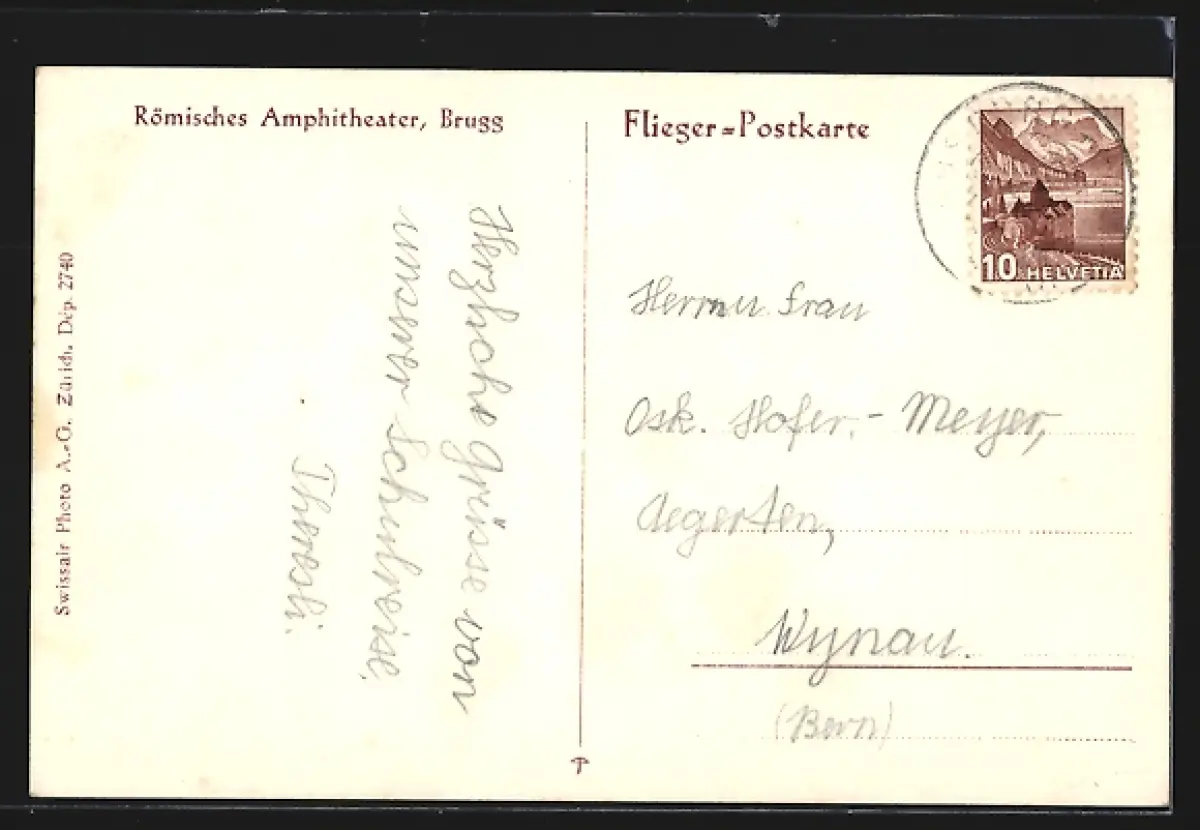 Römisches Amphitheater, Brugg
Swissair Photo A.-G. Zürich, Dép. 2740
Herzliche Grüsse von
unserer Schulreise.
Theresli.
Flieger=Postkarte
10 HELVETIA
Herrn u. Frau
Osk. Hofer.- Meyer,
Aegerten,
Wynau.
(Bern)